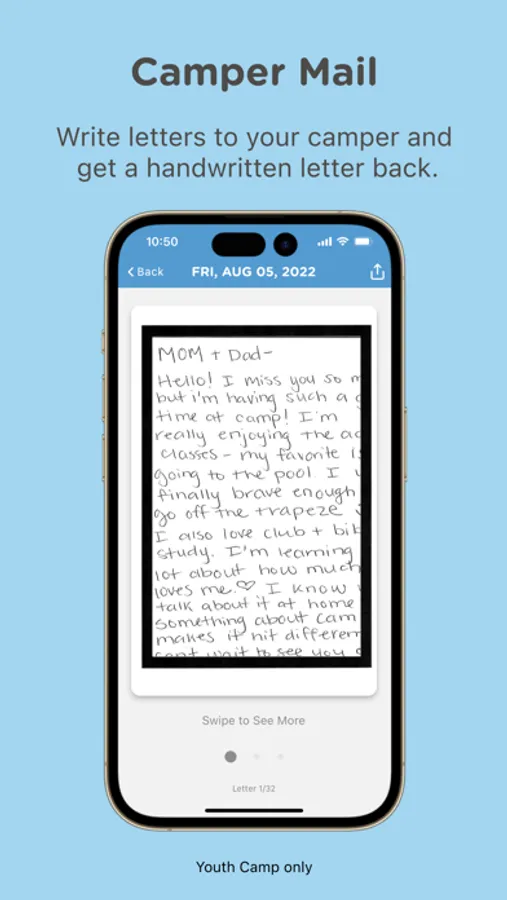 Camper Mail
Write letters to your camper and
get a handwritten letter back.
10:50
Back
FRI, AUG 05, 2022
MOM + Dad-
Hello! I miss you so
but i'm having such a
time at camp! I'm
really enjoying the
classes - my favorite
going to the pool. I
finally brave enough
go off the trapeze
I also love club +
study. I'm learning
lot about how much
loves me.♡ I know
talk about it at home
something about
makes it hit
can't wait to see you
Swipe to See More
Letter 1/32
Youth Camp only